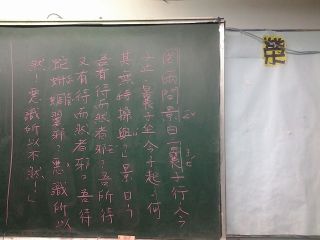 罔兩問景曰:「曩子行,今
子止;曩子坐,今子起;何
其無特操與?」景曰:「
吾有待而然者邪?吾所待
又有待而然者邪?吾待
蛇蚹蜩翼邪?惡識所以
然!惡識所以不然!」